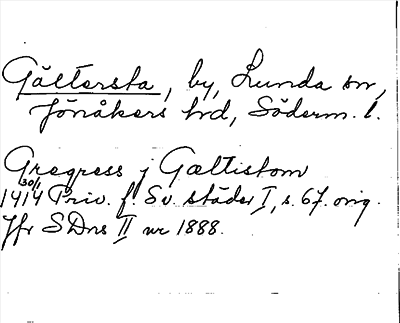 Gältersta, by, Lunda sn,
Jönåkers hd, Söderm. l.
Gregress j Gæltistom
30/1
1414 Priv. f. Sv. städer I, s. 67. orig.
Jfr SDns II nr 1888.